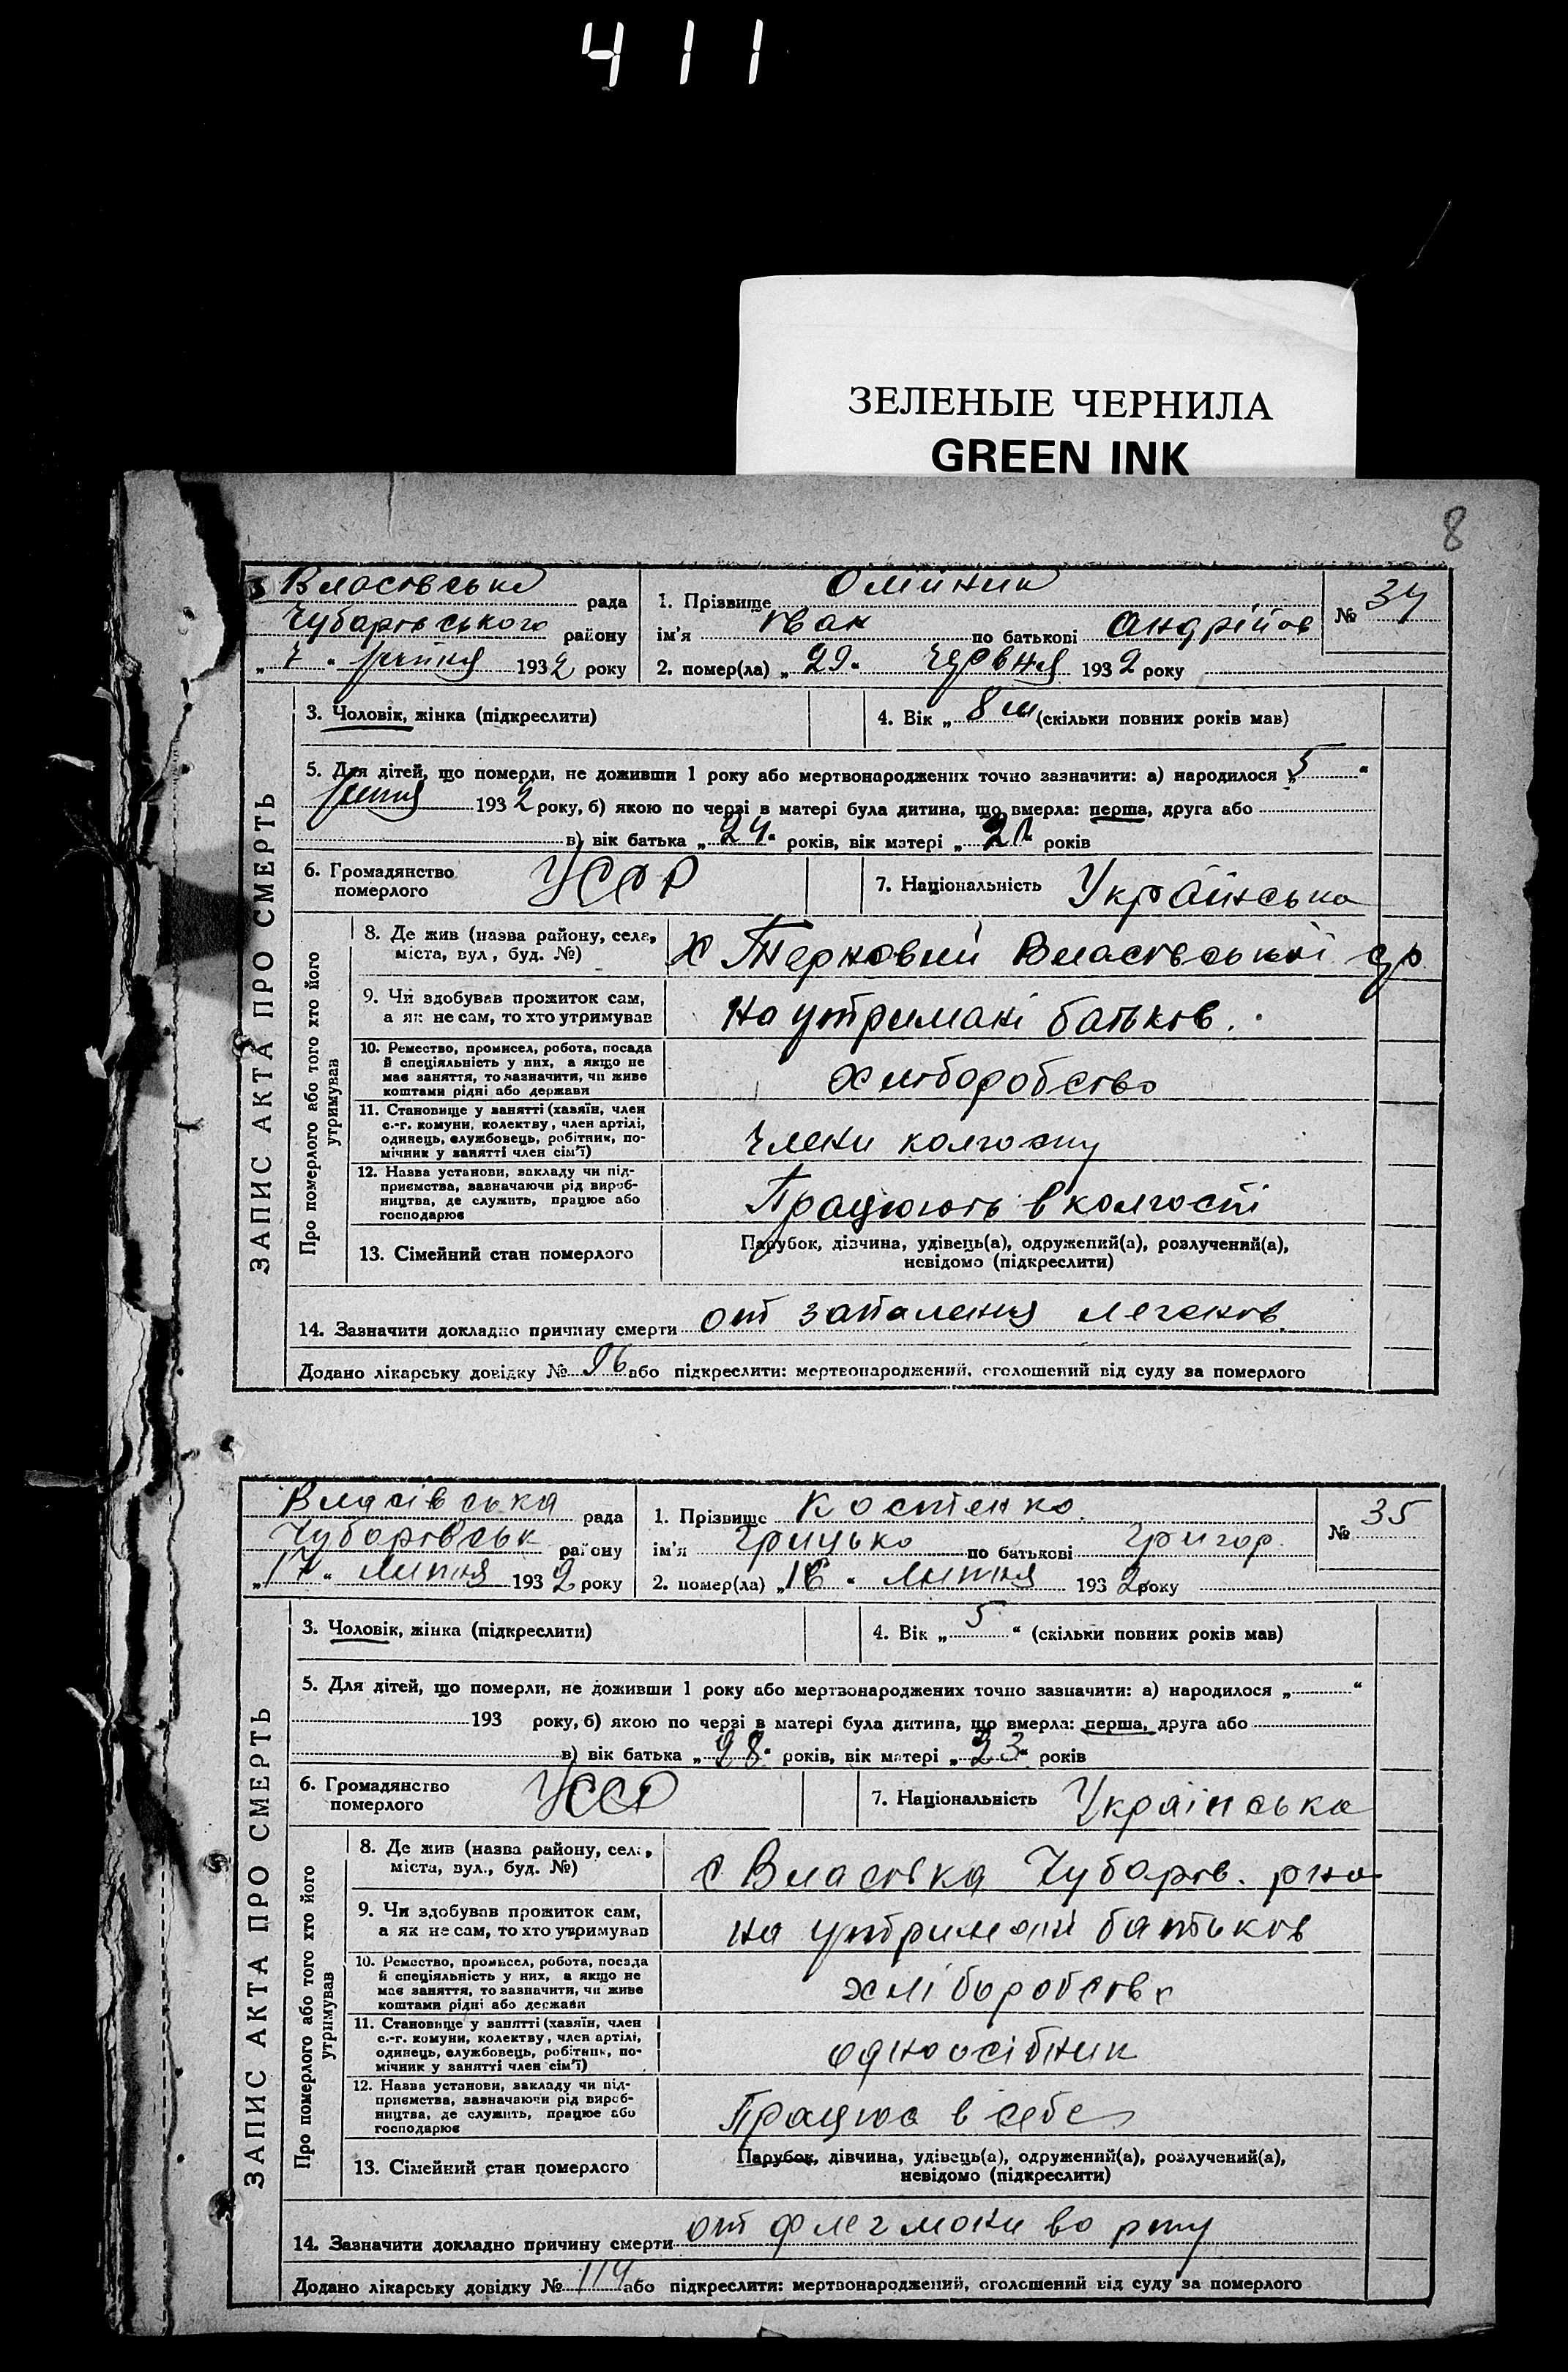 411
ЗЕЛЕНЫЕ ЧЕРНИЛА
GREEN INK
8
Власовська рада
Чубарівського району
„ 7 “ 1932 року
1. Прізвище Олійник
ім’я Іван по батькові Андрійов
№ 34
2. помер(ла) „ 29 “ червня 1932 року
ЗАПИС АКТА ПРО СМЕРТЬ
3. Чоловік, жінка (підкреслити)
4. Вік „ 8 м (скільки повних років мав)
5. Для дітей, що померли, не доживши 1 року або мертвонароджених точно зазначити: а) народилося „ 5 “
1932 року, б) якою по черзі в матері була дитина, що вмерла: перша, друга або
в) вік батька „ 24 “ років, вік матері „ 21 “ років
6. Громадянство
померлого
УССР
7. Національність Українська
Про померлого або того хто його
утримував
8. Де жив (назва району, села,
міста, вул., буд. №)
х Терновий Власовської с/р
9. Чи здобував прожиток сам,
а як не сам, то хто утримував
На утримані батьков.
10. Ремество, промисел, робота, посада
й спеціяльність у них, а якщо не
має заняття, то зазначити, чи живе
коштами рідні або держави
хлиборобство
11. Становище у занятті (хазяїн, член
с.-г. комуни, колективу, член артілі,
одинець, службовець, робітник, по-
мічник у занятті член сім’ї)
члени колгоспу
12. Назва установи, закладу чи під-
приємства, зазначаючи рід вироб-
ництва, де служить, працює або
господарює
Працюють в колгоспі
13. Сімейний стан померлого
Парубок, дівчина, удівець(а), одружений(а), розлучений(а),
невідомо (підкреслити)
14. Зазначити докладно причину смерти от запаления легенов.
Додано лікарську довідку № 96 або підкреслити: мертвонароджений, оголошений від суду за померлого
Власівська рада
Чубаровськ району
„ 17 “ липня 1932 року
1. Прізвище Костенко.
ім’я Грицько по батькові Григор.
№ 35
2. помер(ла) „ 16 “ липня 1932 року
ЗАПИС АКТА ПРО СМЕРТЬ
3. Чоловік, жінка (підкреслити)
4. Вік „ 5 “ (скільки повних років мав)
5. Для дітей, що померли, не доживши 1 року або мертвонароджених точно зазначити: а) народилося „ “
193 року, б) якою по черзі в матері була дитина, що вмерла: перша, друга або
в) вік батька „ 28 “ років, вік матері „ 23 “ років
6. Громадянство
померлого
УССР
7. Національність Українська
Про померлого або того хто його
утримував
8. Де жив (назва району, села,
міста, вул., буд. №)
с Власовка Чубаров. р-на
9. Чи здобував прожиток сам,
а як не сам, то хто утримував
на утримані батьков
10. Ремество, промисел, робота, посада
й спеціяльність у них, а якщо не
має заняття, то зазначити, чи живе
коштами рідні або держави
хліборобство
11. Становище у занятті (хазяїн, член
с.-г. комуни, колективу, член артілі,
одинець, службовець, робітник, по-
мічник у занятті член сім’ї)
одноосібник
12. Назва установи, закладу чи під-
приємства, зазначаючи рід вироб-
ництва, де служить, працює або
господарює
Працює в себе
13. Сімейний стан померлого
Парубок, дівчина, удівець(а), одружений(а), розлучений(а),
невідомо (підкреслити)
14. Зазначити докладно причину смерти от флегмони во рту
Додано лікарську довідку № 114 або підкреслити: мертвонароджений, оголошений від суду за померлого